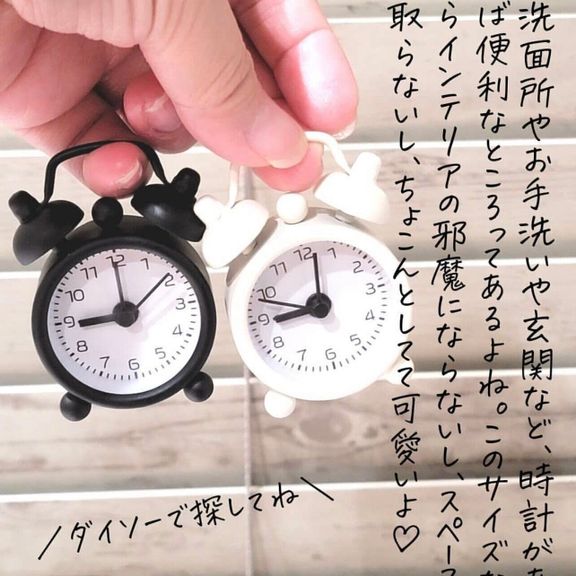 洗面所やお手洗いや玄関など、時計があ
ば便利なところってあるよね。このサイズな
らインテリアの邪魔にならないし、スペース
取らないし、ちょこんとしてて可愛いよ♡
/ダイソーで探してね\
12
1
2
3
4
5
6
7
8
9
10
11
12
1
2
3
4
5
6
7
8
9
10
11